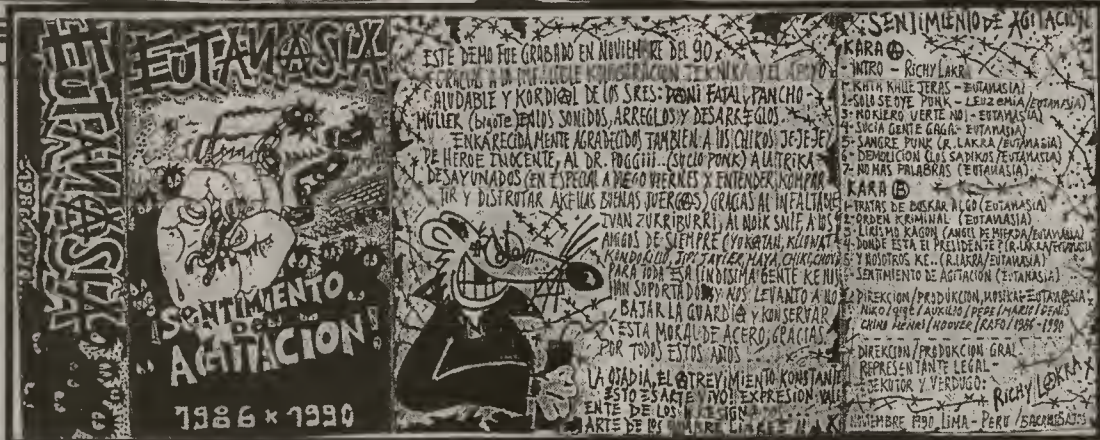 EUTANASIA
EUTANASIA
¡SENTIMIENTO
AGITACION!
1986 x 1990
ESTE DEMO FUE GRABADO EN NOVIEMBRE DEL 90
GRACIAS A LA KOLABORACION TEKNIKA Y EL APOYO
SALUDABLE Y KORDIAL DE LOS SRES: DONI FATAL, PANCHO
MÜLLER (bigote) EN LOS SONIDOS, ARREGLOS Y DESARREGLOS.
ENKARECIDAMENTE AGRADECIDOS TAMBIEN: A LOS CHIKOS JE JE JE Y
DE HEROE INOCENTE, AL DR. POGGiii.. (SUCIO PUNK) A LA TRIKA
DESAYUNADOS (EN ESPECIAL A DIEGO VIERNES X ENTENDER, KOMPAR
TIR Y DISFRUTAR AKELLAS BUENAS JUERGAS) GRACIAS AL INFALTABLE
IVAN ZURRIBURRI, AL NOIK SNIF, A LOS
AMIGOS DE SIEMPRE (
JAVIER, MAYA,
PARA TODA ESA LINDISIMA GENTE KE NOS
HAN SOPORTADO Y NOS LEVANTO A NO
BAJAR LA GUARDIA Y KONSERVAR
ESTA MORAL DE ACERO, GRACIAS
POR TODOS ESTOS AÑOS
LA OSADIA, EL ATREVIMIENTO KONSTANTE
ESTO ES ARTE VIVO! EXPRESION VALI
ENTE DE LOS
ARTE DE LOS HOMBRE LIBRES!!
SENTIMIENTO DE AGITACION
KARA A
- INTRO - RICHY LAKRA
1- KALLEJERAS - EUTANASIA)
2- SOLO SE OYE PUNK - LEUZEMIA/EUTANASIA)
3- NO KIERO VERTE NO! - EUTANASIA)
4- SUCIA GENTE GAGA - EUTANASIA)
5- SANGRE PUNK (R. LAKRA/EUTANASIA)
6- DEMOLICION (LOS SADIKOS/EUTANASIA)
7- NO MAS PALABRAS (EUTANASIA)
KARA B
1- TRATAS DE BUSKAR ALGO (EUTANASIA)
2- ORDEN KRIMINAL (EUTANASIA)
3- LIRISMO KAGON (ANGEL DE MIERDA/EUTANASIA)
4- DONDE ESTA EL PRESIDENTE? (R. LAKRA/EUTANASIA
5- Y NOSOTROS KE.. (R. LAKRA/EUTANASIA)
6- SENTIMIENTO DE AGITACION (EUTANASIA)
DIREKCION/PRODUKCION, MUSIKA: EUTANASIA
NIKO/KIKE/AUXILIO/PEPE/MARIO/DENIS
CHINO HENRI/HOOVER/RAFO/1986-1990
DIREKCION/PRODUKCION GRAL
REPRESENTANTE LEGAL -
EJEKUTOR Y VERDUGO:
RICHY LAKRA X
NOVIEMBRE 1990 LIMA - PERU /